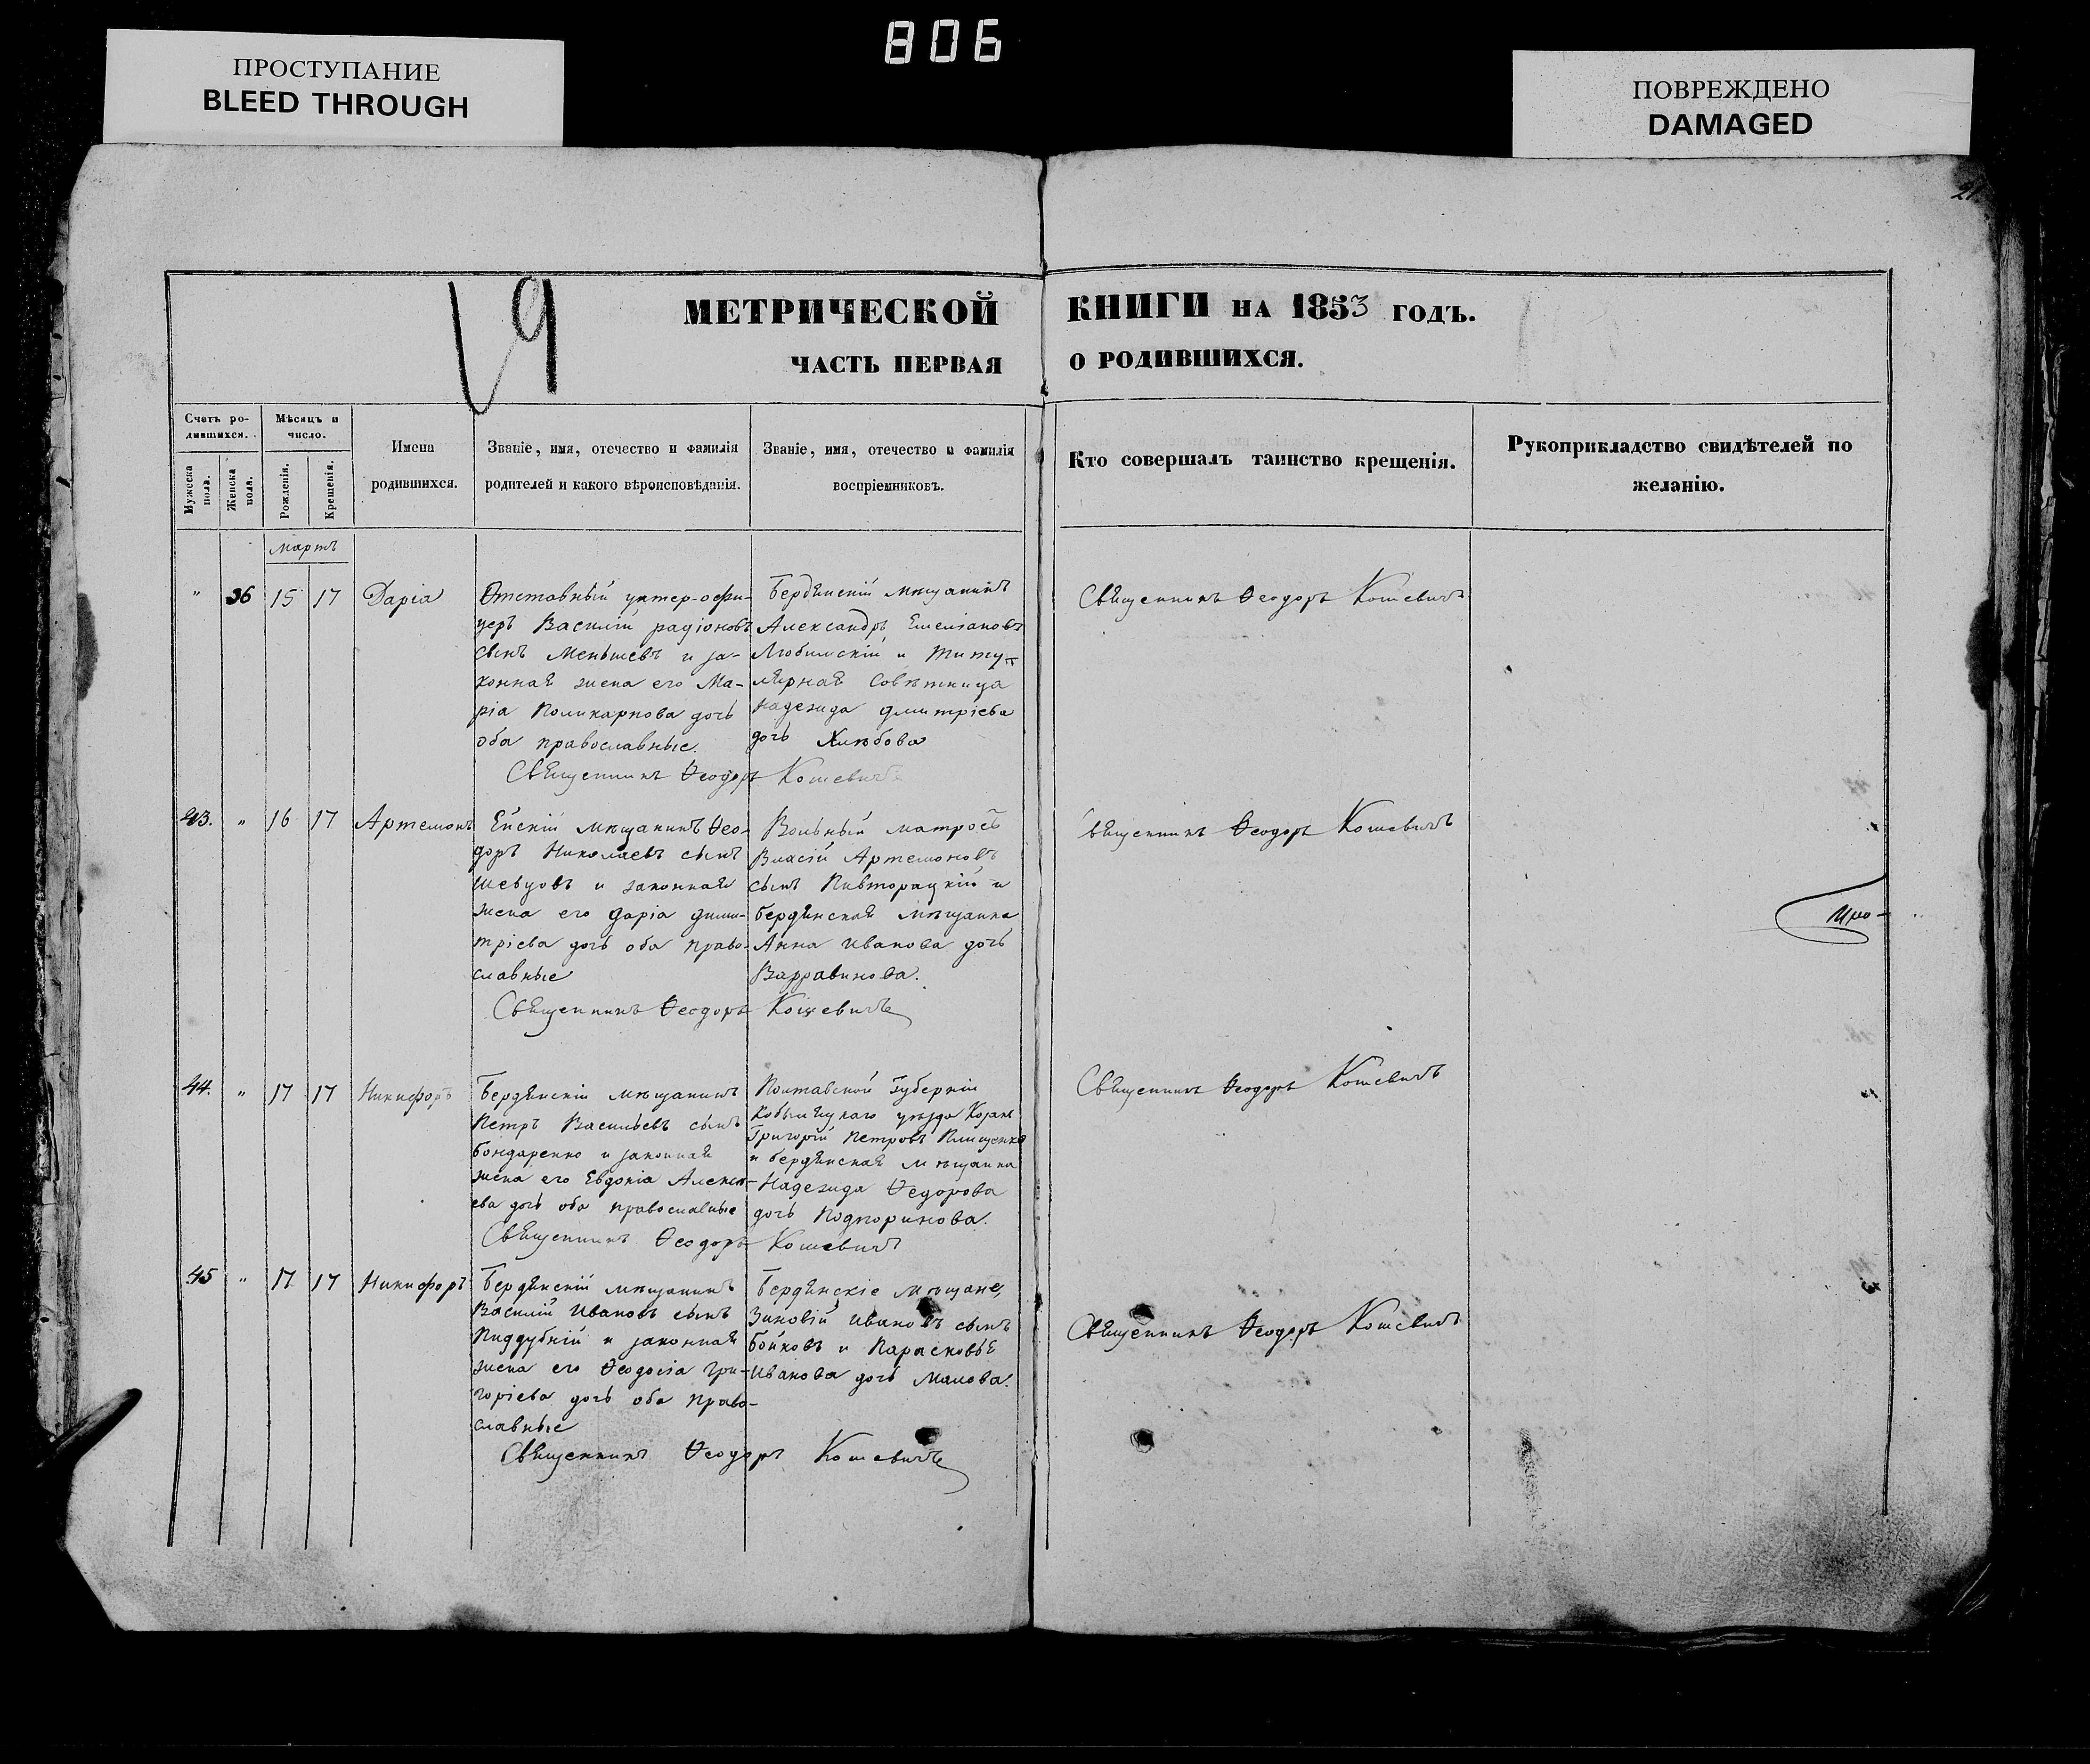 806
ПРОСТУПАНИЕ
BLEED THROUGH
ПОВРЕЖДЕНО
DAMAGED
19
МЕТРИЧЕСКОЙ КНИГИ НА 1853 ГОДЪ.
ЧАСТЬ ПЕРВАЯ О РОДИВШИХСЯ.
Счетъ ро-
дившихся.
Мужеска
пола.
Женска
пола.
Мѣсяцъ и
число.
Рожденія.
Крещенія.
Имена
родившихся.
Званіе, имя, отечество и фамилія
родителей и какого вѣроисповѣданія.
Званіе, имя, отечество и фамилія
воспріемниковъ.
Кто совершалъ таинство крещенія.
Рукоприкладство свидѣтелей по
желанію.
Мартъ
" 36 15 17 Дарія
Отставный унтер-офи-
церъ Василій радіоновъ
сынъ Меньшевъ и за-
конная жена его Ма-
рія Поликарпова дочь
оба православные.
Бердянскій мѣщанинъ
Александръ Емеліановъ
Любимскій и титу-
лярная Совѣтница
надежда дмитріева
дочь Хлѣбова
Священникъ Ѳеодоръ Кошевичъ
Священникъ Ѳеодоръ Кошевичъ
43. " 16 17 Артемонъ
Ейскій мѣщанинъ Ѳео-
доръ Николаевъ сынъ
Шевцовъ и законная
жена его Дарія дими-
тріева дочь оба право-
славные
Вольный матросъ
Власій Артемоновъ
сынъ Пивторацкій и
бердянская мѣщанка
Анна Иванова дочь
Варравинова.
Священникъ Ѳеодоръ Кошевичъ
Священникъ Ѳеодоръ Кошевичъ
44. " 17 17 Никифоръ
Бердянскій мѣщанинъ
Петръ Васильевъ сынъ
бондаренко и законная
жена его Евдокія Алексѣ-
ева дочь оба православные
Полтавской Губерніи
Кобыляцкаго уѣзда Козакъ
Григорій Петровъ Плищенко
и бердянская мѣщанка
Надежда Ѳедорова
дочь Подпоринова.
Священникъ Ѳеодоръ Кошевичъ
Священникъ Ѳеодоръ Кошевичъ
45 " 17 17 Никифоръ
Бердянскій мѣщанинъ
Василій Ивановъ сынъ
Пиддубній и законная
жена его Ѳеодосія Гри-
горіева дочь оба право-
славные
Бердянскіе мѣщане,
Зиновій Ивановъ сынъ
бойковъ и Парасковья
Иванова дочь Малова.
Священникъ Ѳеодоръ Кошевичъ
Священникъ Ѳеодоръ Кошевичъ